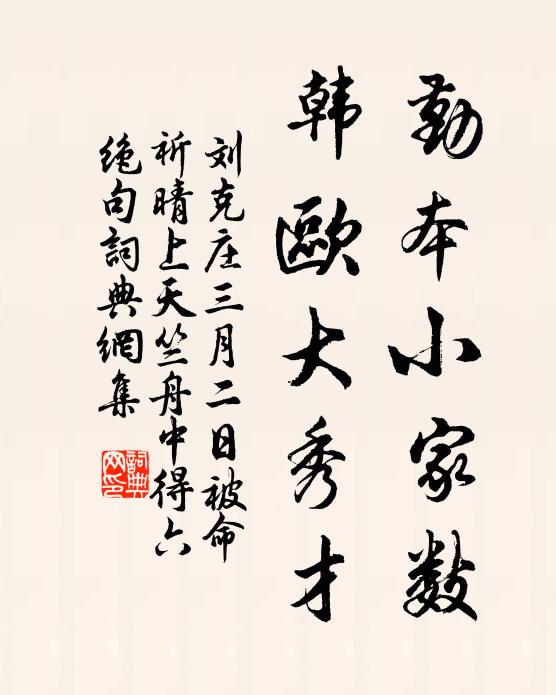 勤本小家数
韩欧大秀才
刘克庄三月二日被命
祈晴上天竺舟中得六
绝句词典网集
詞典网印